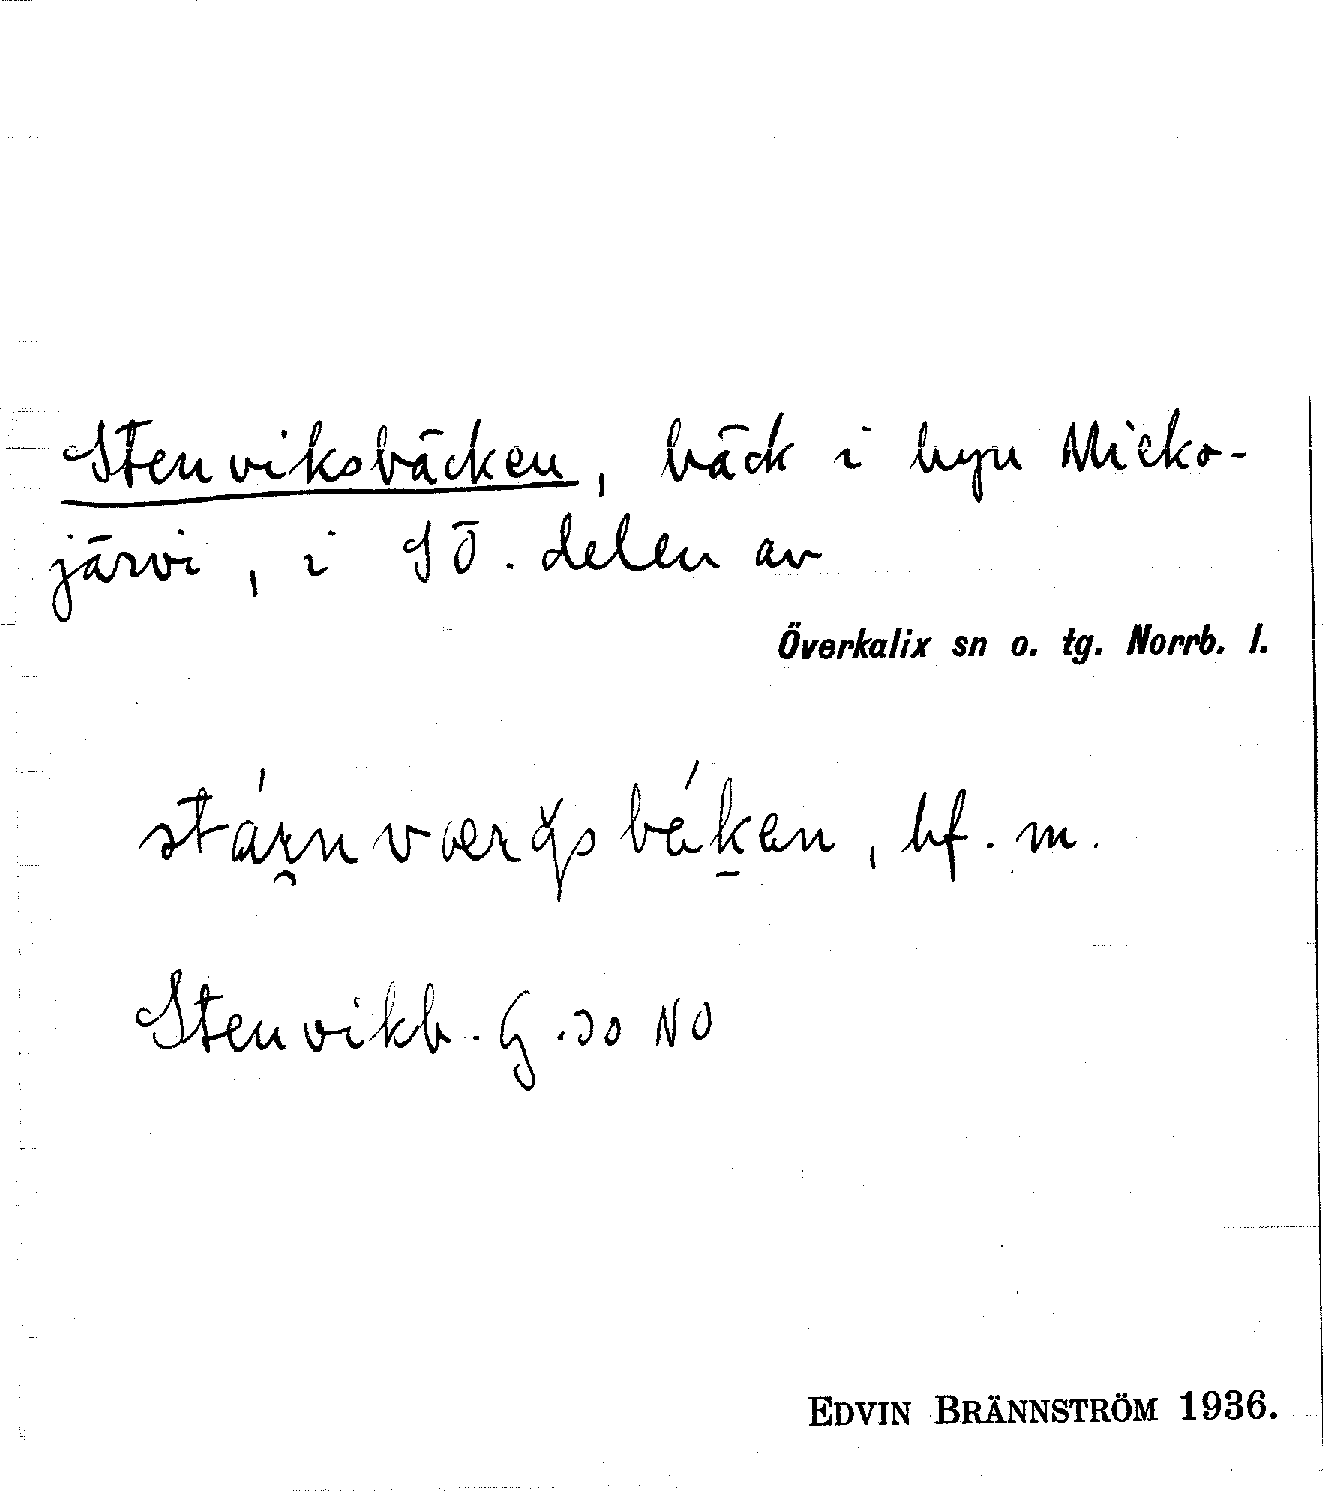 Stenviksbäcken, bäck i byn Micko-
järvi, i SÖ. delen av
Överkalix sn o. tg. Norrb. l.
bf. m.
Stenvikb. G. 30 NO
EDVIN BRÄNNSTRÖM 1936.